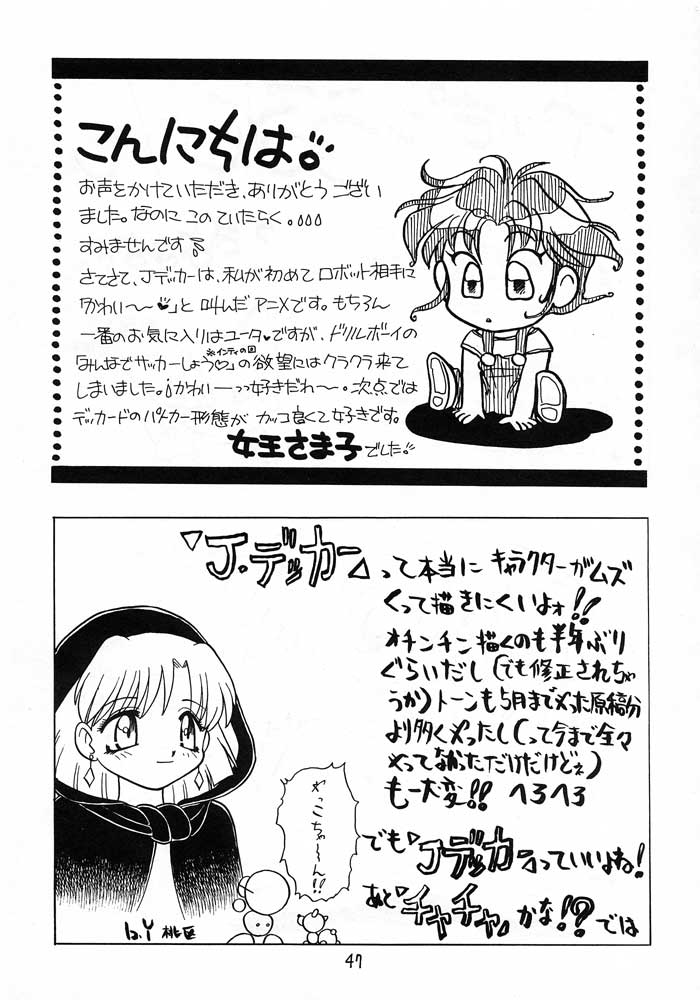 こんにちは。
お声をかけていただき、ありがとう ござい
ました。なのに このていたらく。
すみませんです
さてさて、Jデッカーは、私が初めて ロボット相手に
「かわい～～♥」と 叫んだ アニメです。もちろん
一番のお気に入りはユータ♥ですが、ドリルボーイの
※インティの回
「みんなでサッカーしよう♡」の欲望にはクラクラ来て
しまいました。かわいーっっ好きだわ～。次点では
デッカードのパトカー形態が カッコ良くて好きです。
女王さま子でした。
「J.デッカー」って本当に キャラクターがムズ
くって描きにくいよォ!!
オチンチン描くのも半年ぶり
ぐらいだし(でも修正されちゃ
うか)トーンも5月まで使った原稿分
より多く使ったし(って今まで全々
使ってなかっただけだけどネ)
もー大変!! ヘろヘろ
でも「Jデッカー」っていいよね!
あと「チャチャ」かな!? では
やっこちゃ～ん!!
by 桃
47